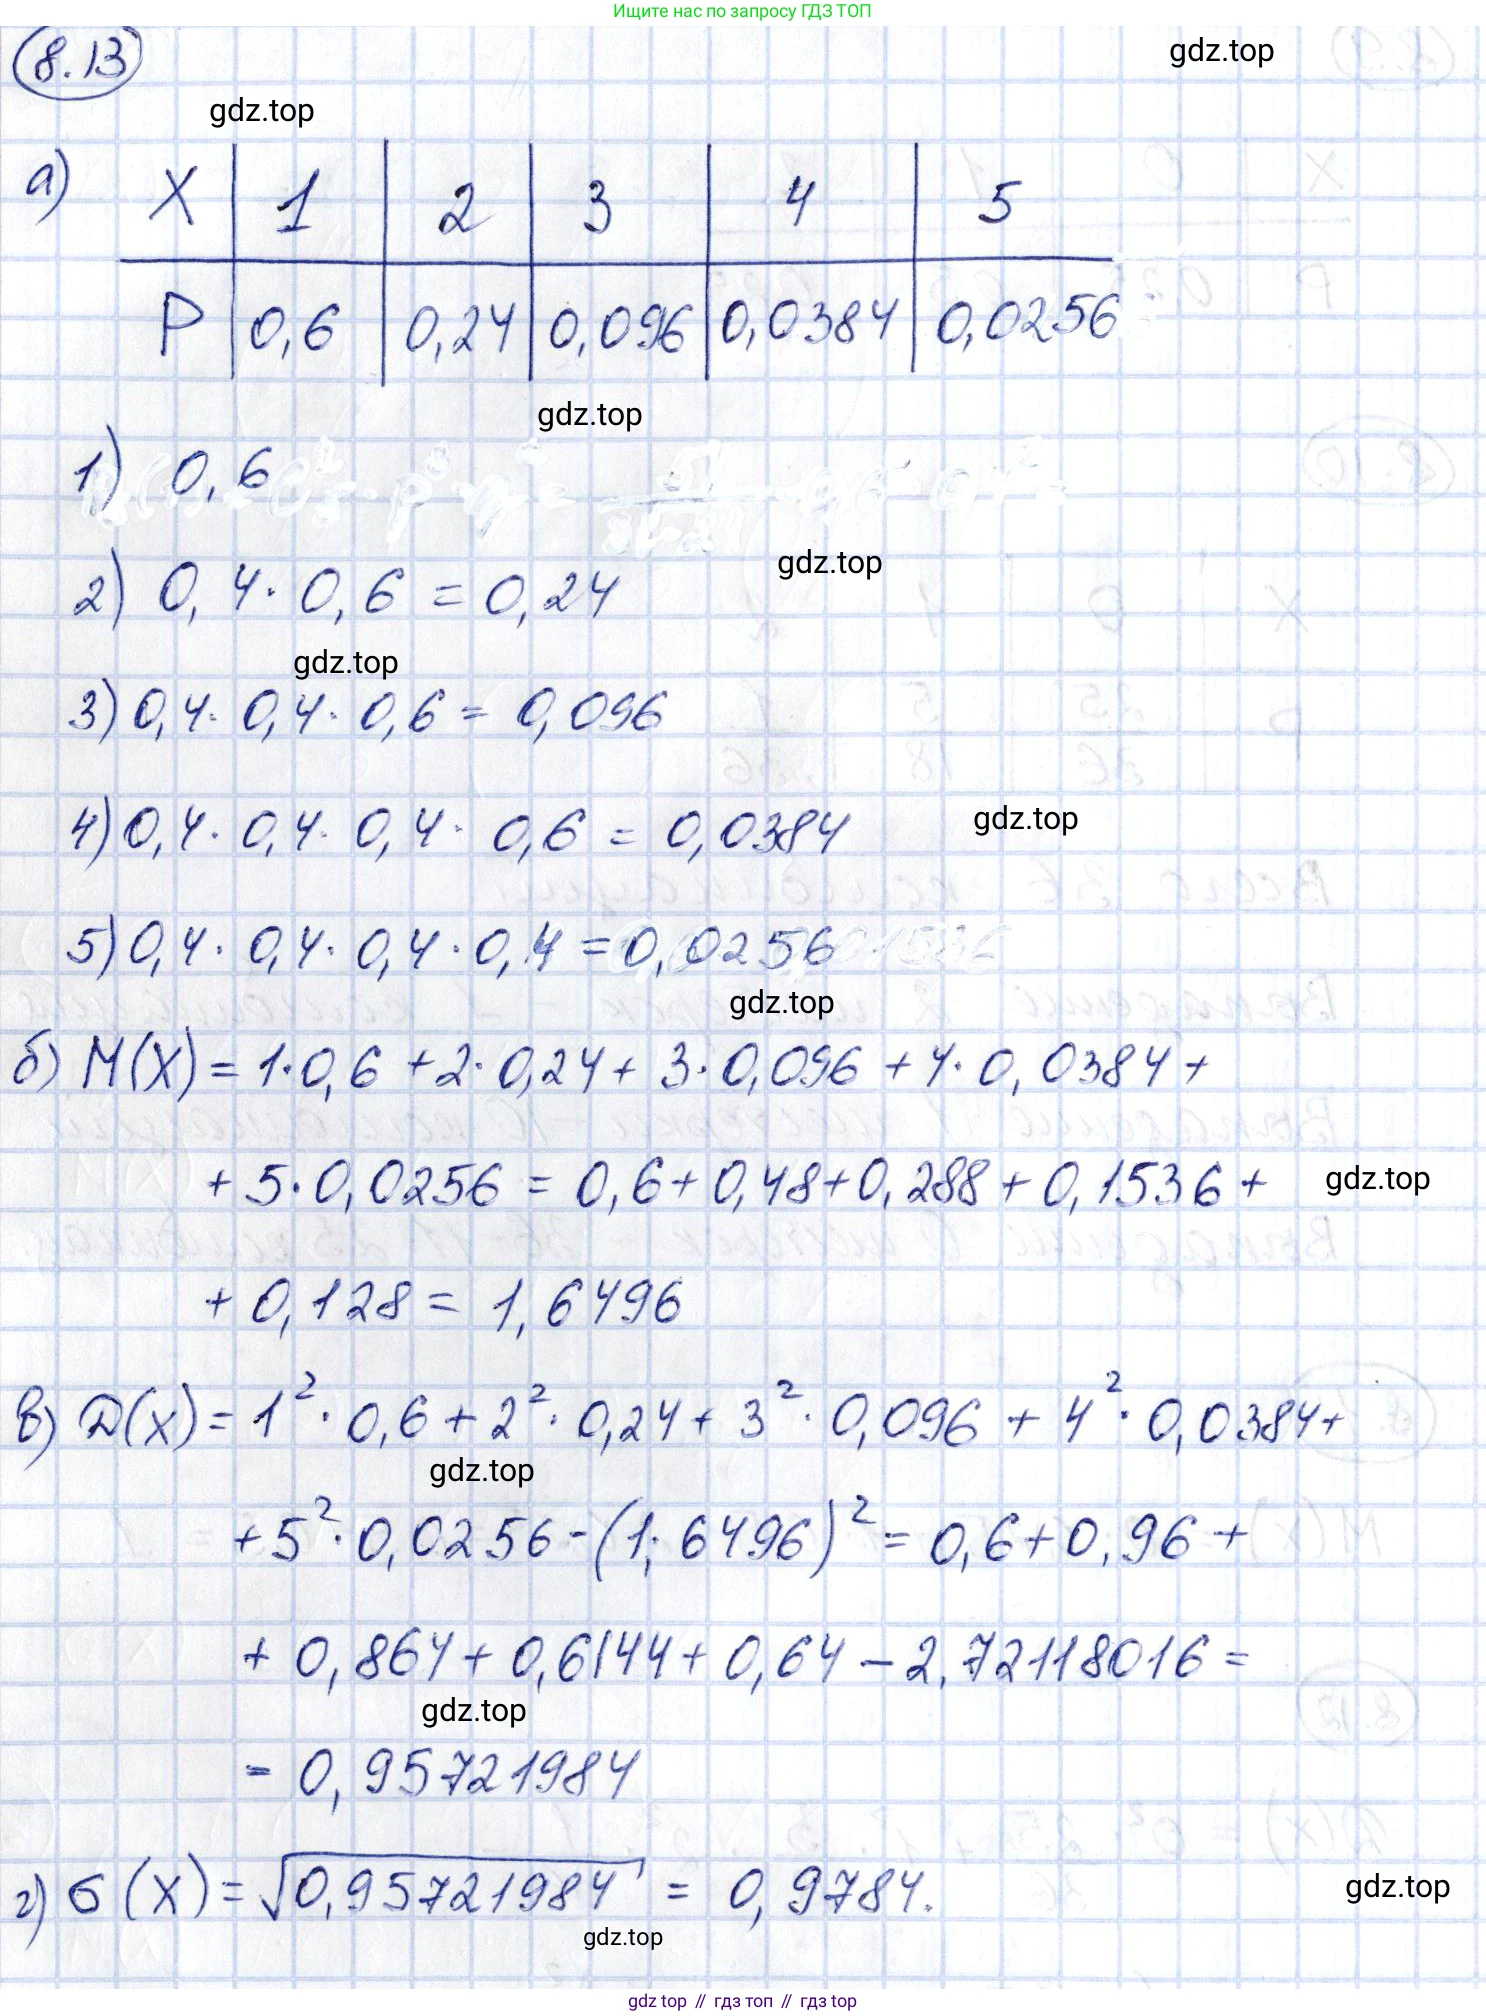 Ищите нас по запросу ГДЗ ТОП
8.13
gdz.top
gdz.top
а) X 1 2 3 4 5
P 0,6 0,24 0,096 0,0384 0,0256
gdz.top
1) 0,6
gdz.top
2) 0,4 · 0,6 = 0,24
gdz.top
3) 0,4 · 0,4 · 0,6 = 0,096
gdz.top
4) 0,4 · 0,4 · 0,4 · 0,6 = 0,0384
5) 0,4 · 0,4 · 0,4 · 0,4 = 0,0256
gdz.top
б) M(X) = 1 · 0,6 + 2 · 0,24 + 3 · 0,096 + 4 · 0,0384 +
+ 5 · 0,0256 = 0,6 + 0,48 + 0,288 + 0,1536 +
gdz.top
+ 0,128 = 1,6496
в) D(X) = 1² · 0,6 + 2² · 0,24 + 3² · 0,096 + 4² · 0,0384 +
gdz.top
+ 5² · 0,0256 - (1,6496)² = 0,6 + 0,96 +
+ 0,864 + 0,6144 + 0,64 - 2,72118016 =
gdz.top
= 0,95721984
г) σ(X) = √0,95721984 = 0,9784.
gdz.top
gdz.top
gdz.top // гдз топ // гдз top